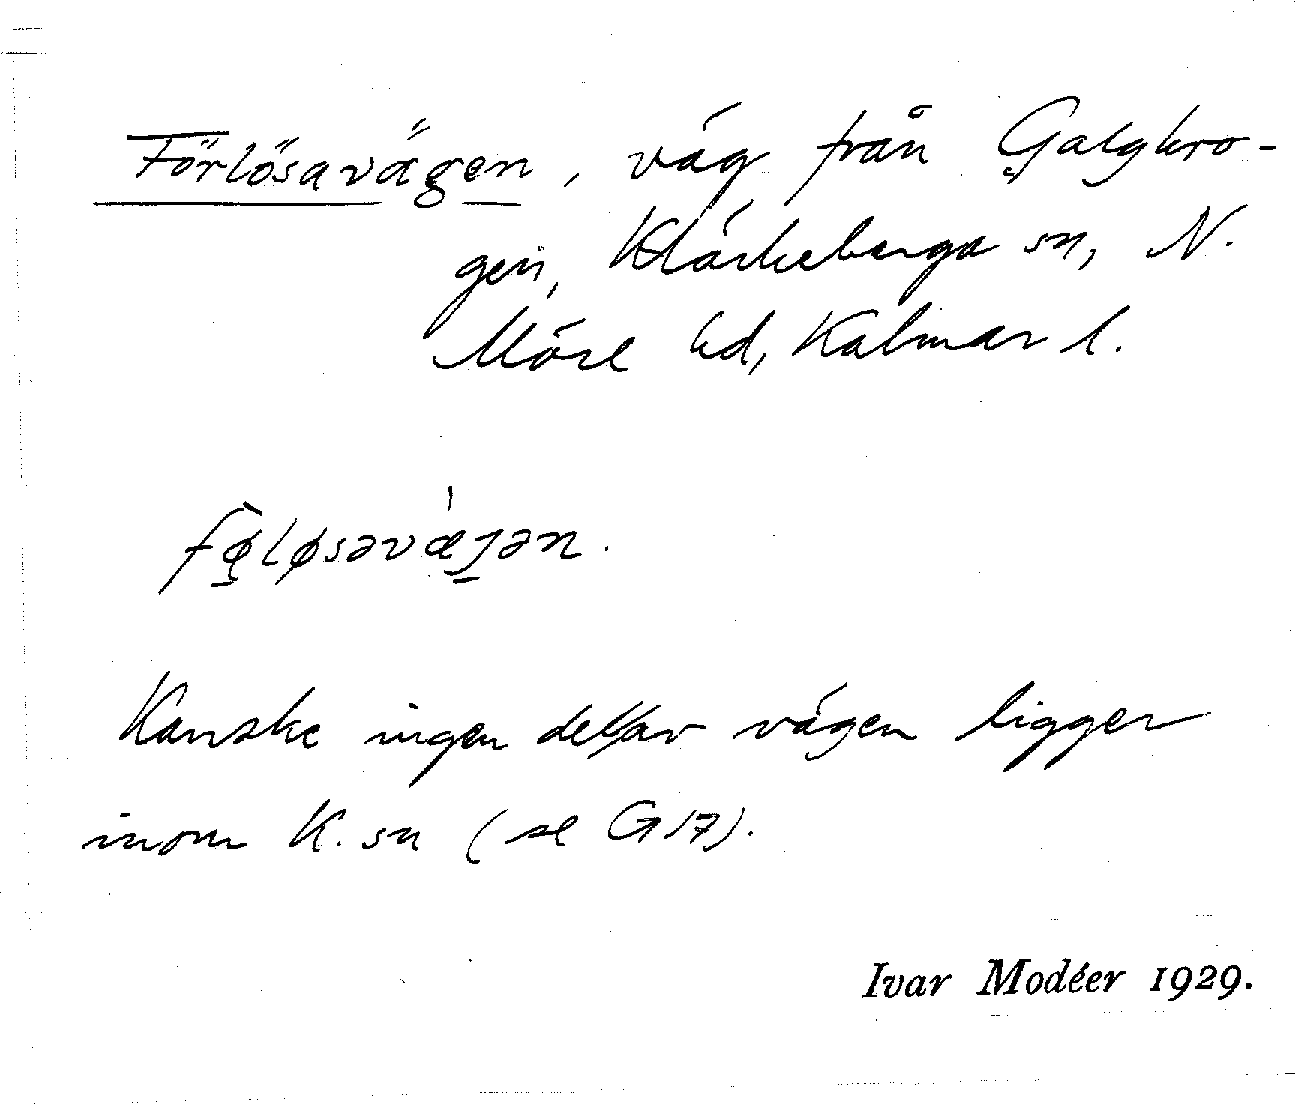 Förlösavägen, väg från Galgkro-
gen, Kläckeberga sn, N.
Möre hd, Kalmar l.
fø̀løsəvæ̀ɟən.
Kanske ingen del av vägen ligger
inom K. sn (se G17).
Ivar Modéer 1929.